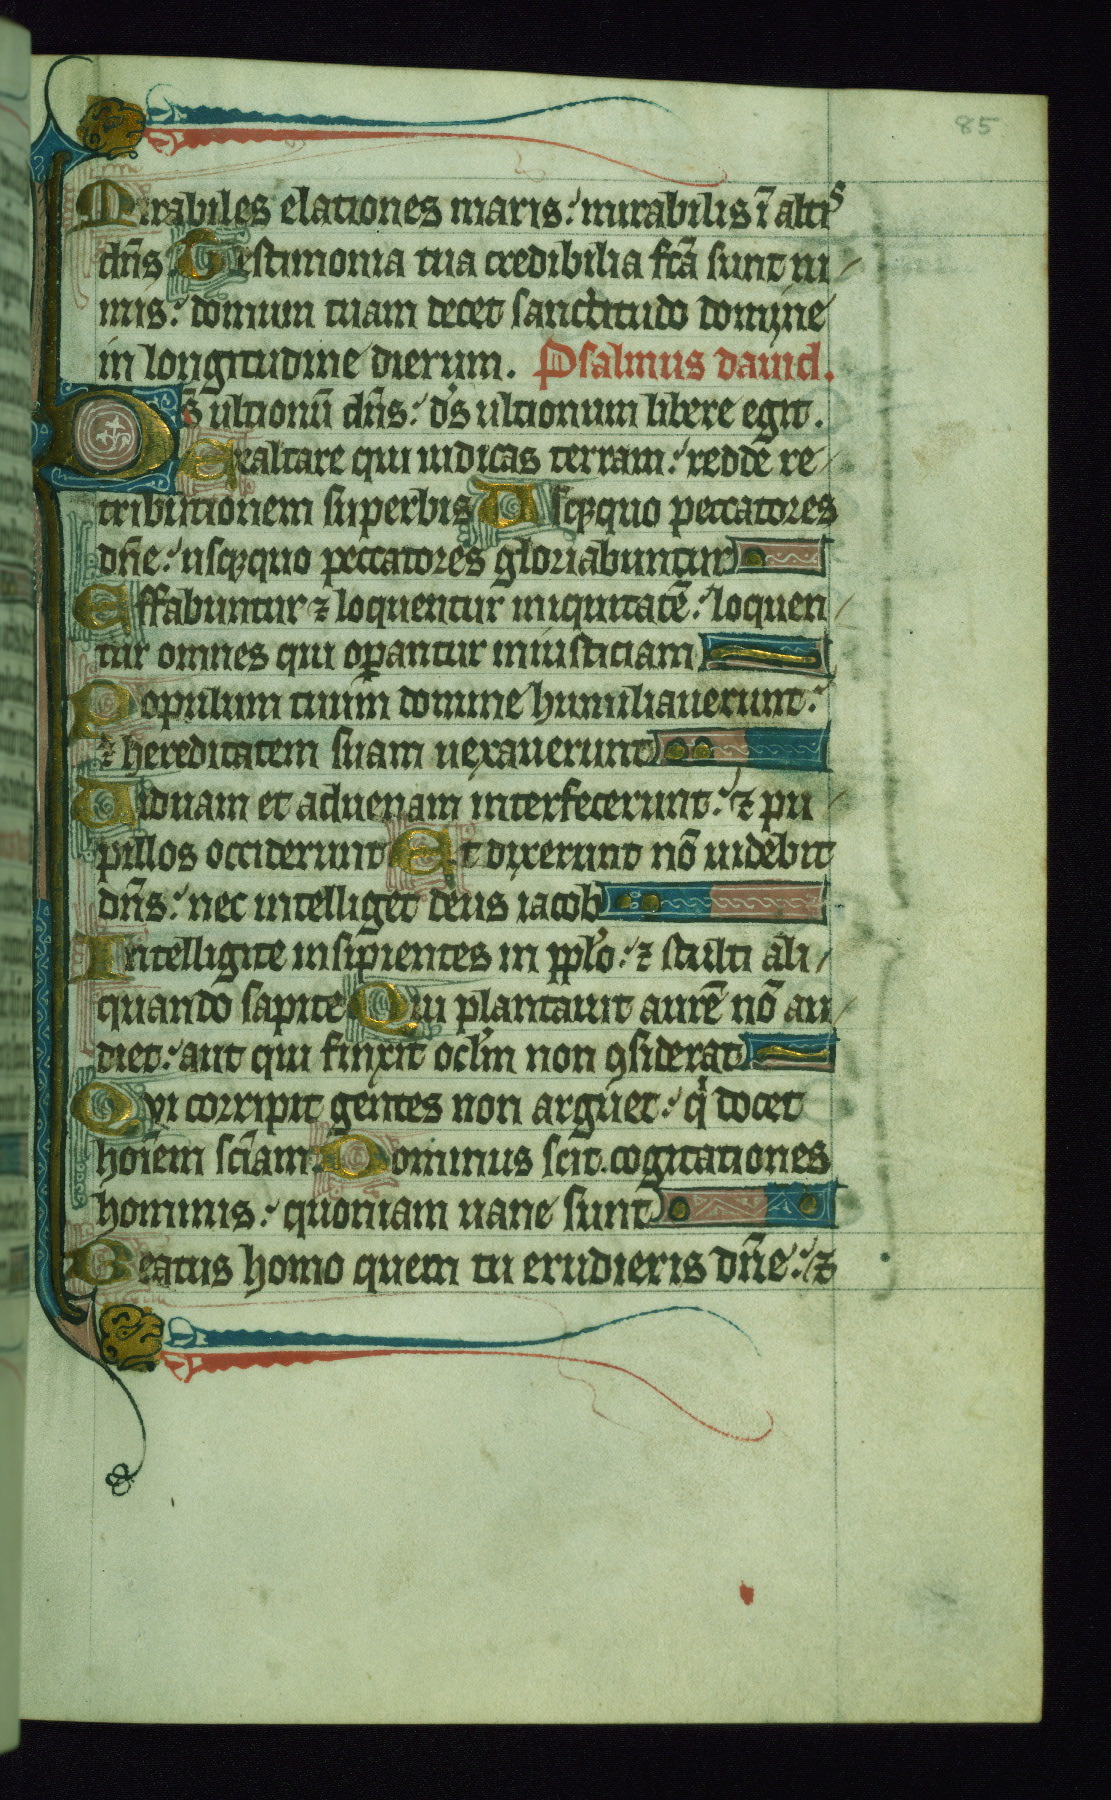 85
Mirabiles elationes maris: mirabilis ĩ altiˢ
dñs. Testimonia tua credibilia fc̃a sunt ni
mis: domum tuam decet sanctitudo domine
in longitudine dierum. Psalmus dauid.
Ds̃ ultionũ dñs: ds̃ ultionum libere egit.
Exaltare qui iudicas terram: redde re
tributionem superbis Vsqꝫquo peccatores
dñe: usqꝫquo peccatores gloriabuntur
Effabuntur ⁊ loquentur iniquitatẽ: loquen
tur omnes qui oꝑantur iniusticiam
Populum tuum domine humiliauerunt:
⁊ hereditatem suam uexauerunt
Viduam et aduenam interfecerunt: ⁊ pu
pillos occiderunt Et dixerunt nõ uidebit
dñs: nec intelliget deus iacob
Intelligite insipientes in pplo: ⁊ stulti ali
quando sapite Qui plantauit aurẽ nõ au
diet: aut qui finxit oclm̃ non ꝯsiderat
Qvi corripit gentes non arguet: qͥ docet
hoĩem scĩam. Dominus scit cogitationes
hominis: quoniam uane sunt
Beatus homo quem tu erudieris dñe: ⁊